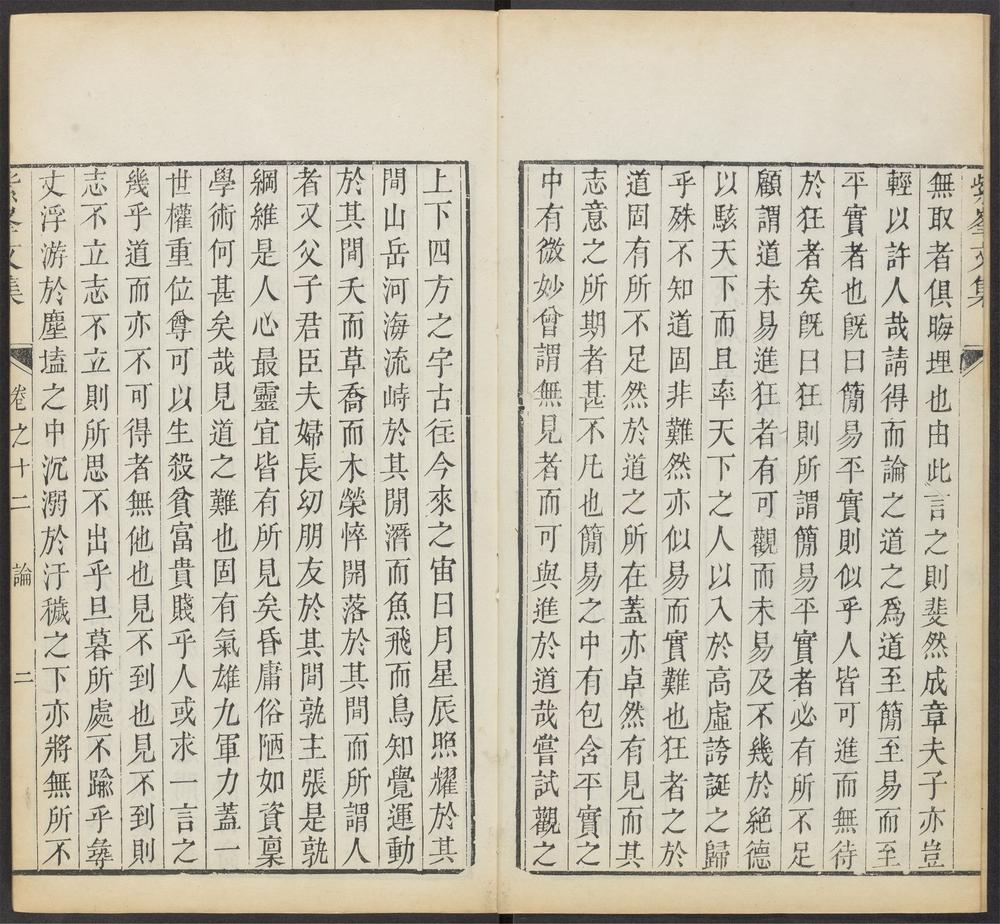 紫峯文集
無取者俱晦埋也由此言之則斐然成章夫子亦豈
輕以許人哉請得而論之道之爲道至簡至易而至
平實者也旣曰簡易平實則似乎人皆可進而無待
於狂者矣旣曰狂則所謂簡易平實者必有所不足
顧謂道未易進狂者有可觀而未易及不幾於絶德
以駭天下而且率天下之人以入於高虛誇誕之歸
乎殊不知道固非難然亦似易而實難也狂者之於
道固有所不足然於道之所在蓋亦卓然有見而其
志意之所期者甚不凡也簡易之中有包含平實之
中有微妙曾謂無見者而可與進於道哉嘗試觀之
上下四方之宇古往今來之宙日月星辰照耀於其
間山岳河海流峙於其閒潛而魚飛而鳥知覺運動
於其間夭而草喬而木榮悴開落於其間而所謂人
者又父子君臣夫婦長幼朋友於其間孰主張是孰
綱維是人心最靈宜皆有所見矣昏庸俗陋如資稟
學術何甚矣哉見道之難也固有氣雄九軍力蓋一
世權重位尊可以生殺貧富貴賤乎人或求一言之
幾乎道而亦不可得者無他也見不到也見不到則
志不立志不立則所思不出乎旦暮所處不踰乎尋
丈浮游於塵壒之中沉溺於汙穢之下亦將無所不
紫峯文集 卷之十二 論 二